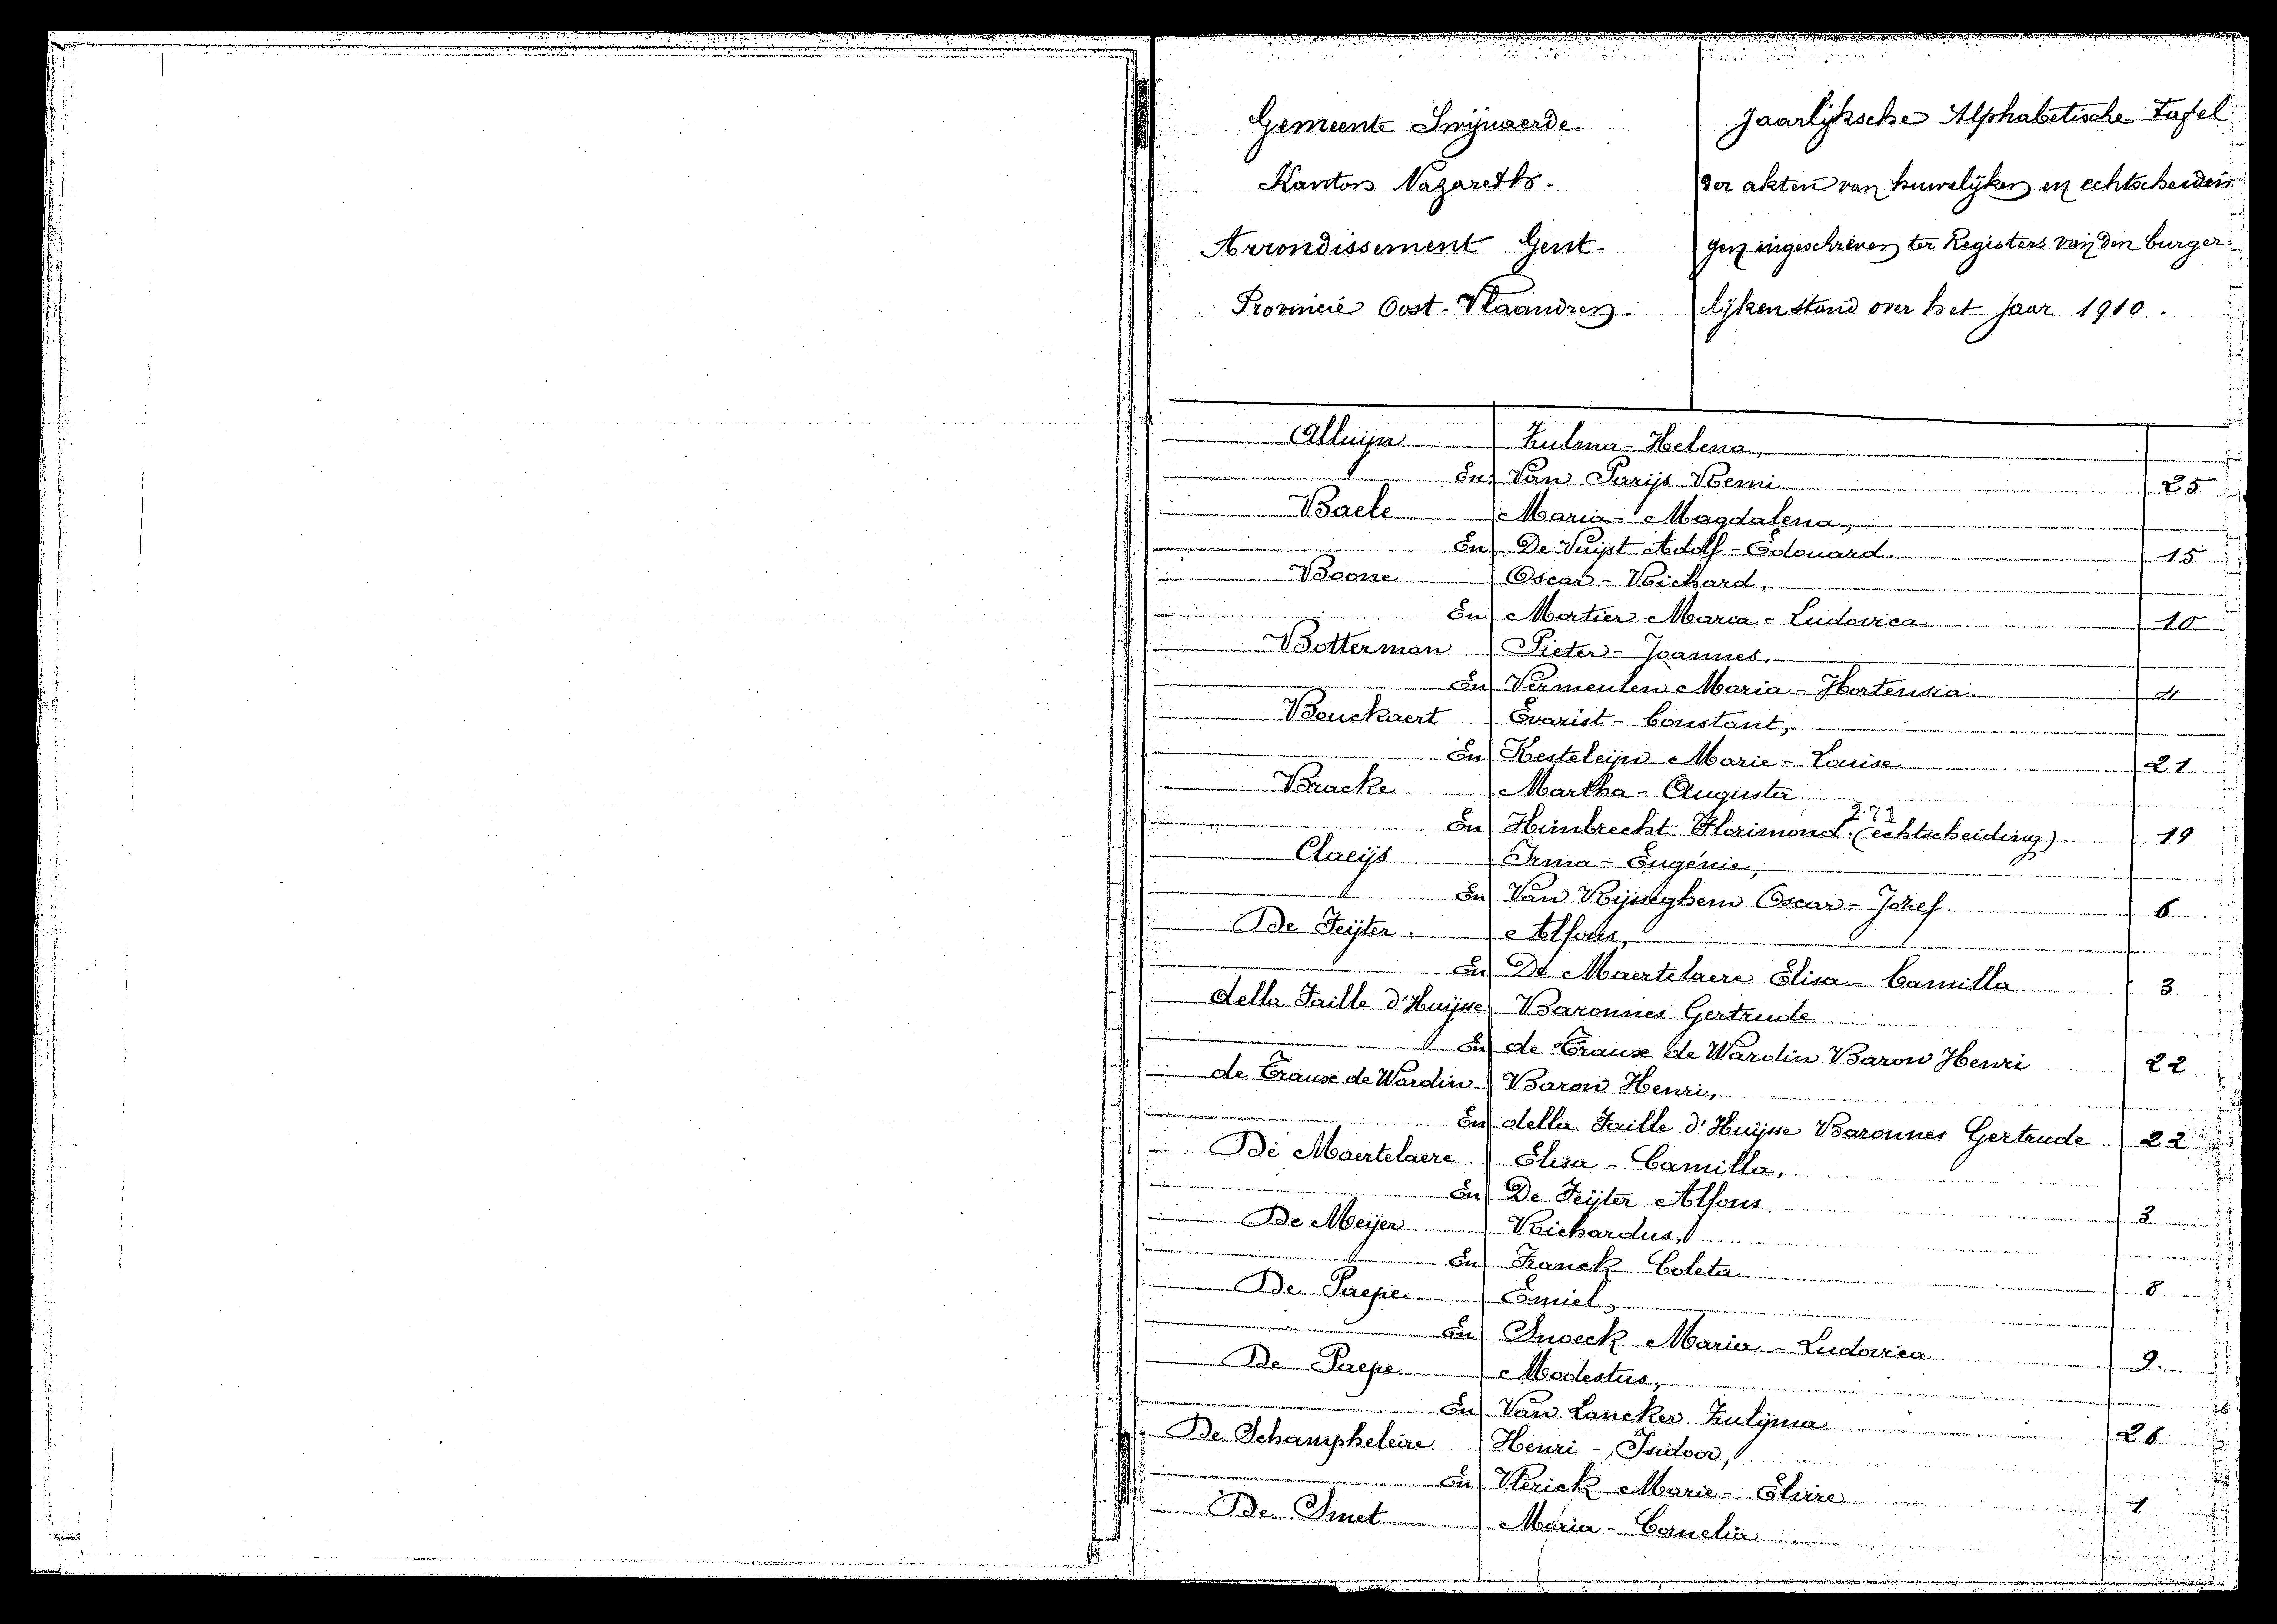 Gemeente Swijnaerde.
Kanton Nazareth.
Arrondissement Gent.
Provincie Oost-Vlaandren.
Jaarlijksche Alphabetische tafel
der akten van huwelijken en echtscheidin
gen ingeschreven ter Registers van den burger=
lijken stand over het jaar 1910.
Alluijn Zulma-Helena,
En Van Parijs Remi 25
Baele Maria-Magdalena,
En De Vuijst Adolf-Edouard. 15
Boone Oscar-Richard,
En Mortier Maria-Ludovica 10
Botterman Pieter-Joannes.
En Vermeulen Maria-Hortensia. 4
Bouckaert Evarist-Constant,
En Kesteleijn Marie-Louise 21
Bracke Martha-Augusta
En Himbrecht Florimond. (echtscheiding). 19
Claeijs Irma-Eugénie,
En Van Rijsseghem Oscar-Jozef. 6
De Feijter. Alfons,
En De Maertelaere Elisa-Camilla 3
della Faille d'Huijsse Baronnes Gertrude
En de Traux de Wardin Baron Henri 22
de Traux de Wardin Baron Henri,
En della Faille d'Huijsse Baronnes Gertrude 22
De Maertelaere Elisa-Camilla,
En De Feijter Alfons. 3
De Meijer Richardus,
En Franck Coleta 8
De Paepe Emiel,
En Snoeck Maria-Ludovica 9.
De Paepe Modestus,
En Van Lancker Zulijma 26
De Schampheleire Henri-Isidoor,
En Vlerick Marie-Elvire 1
De Smet Maria-Cornelia